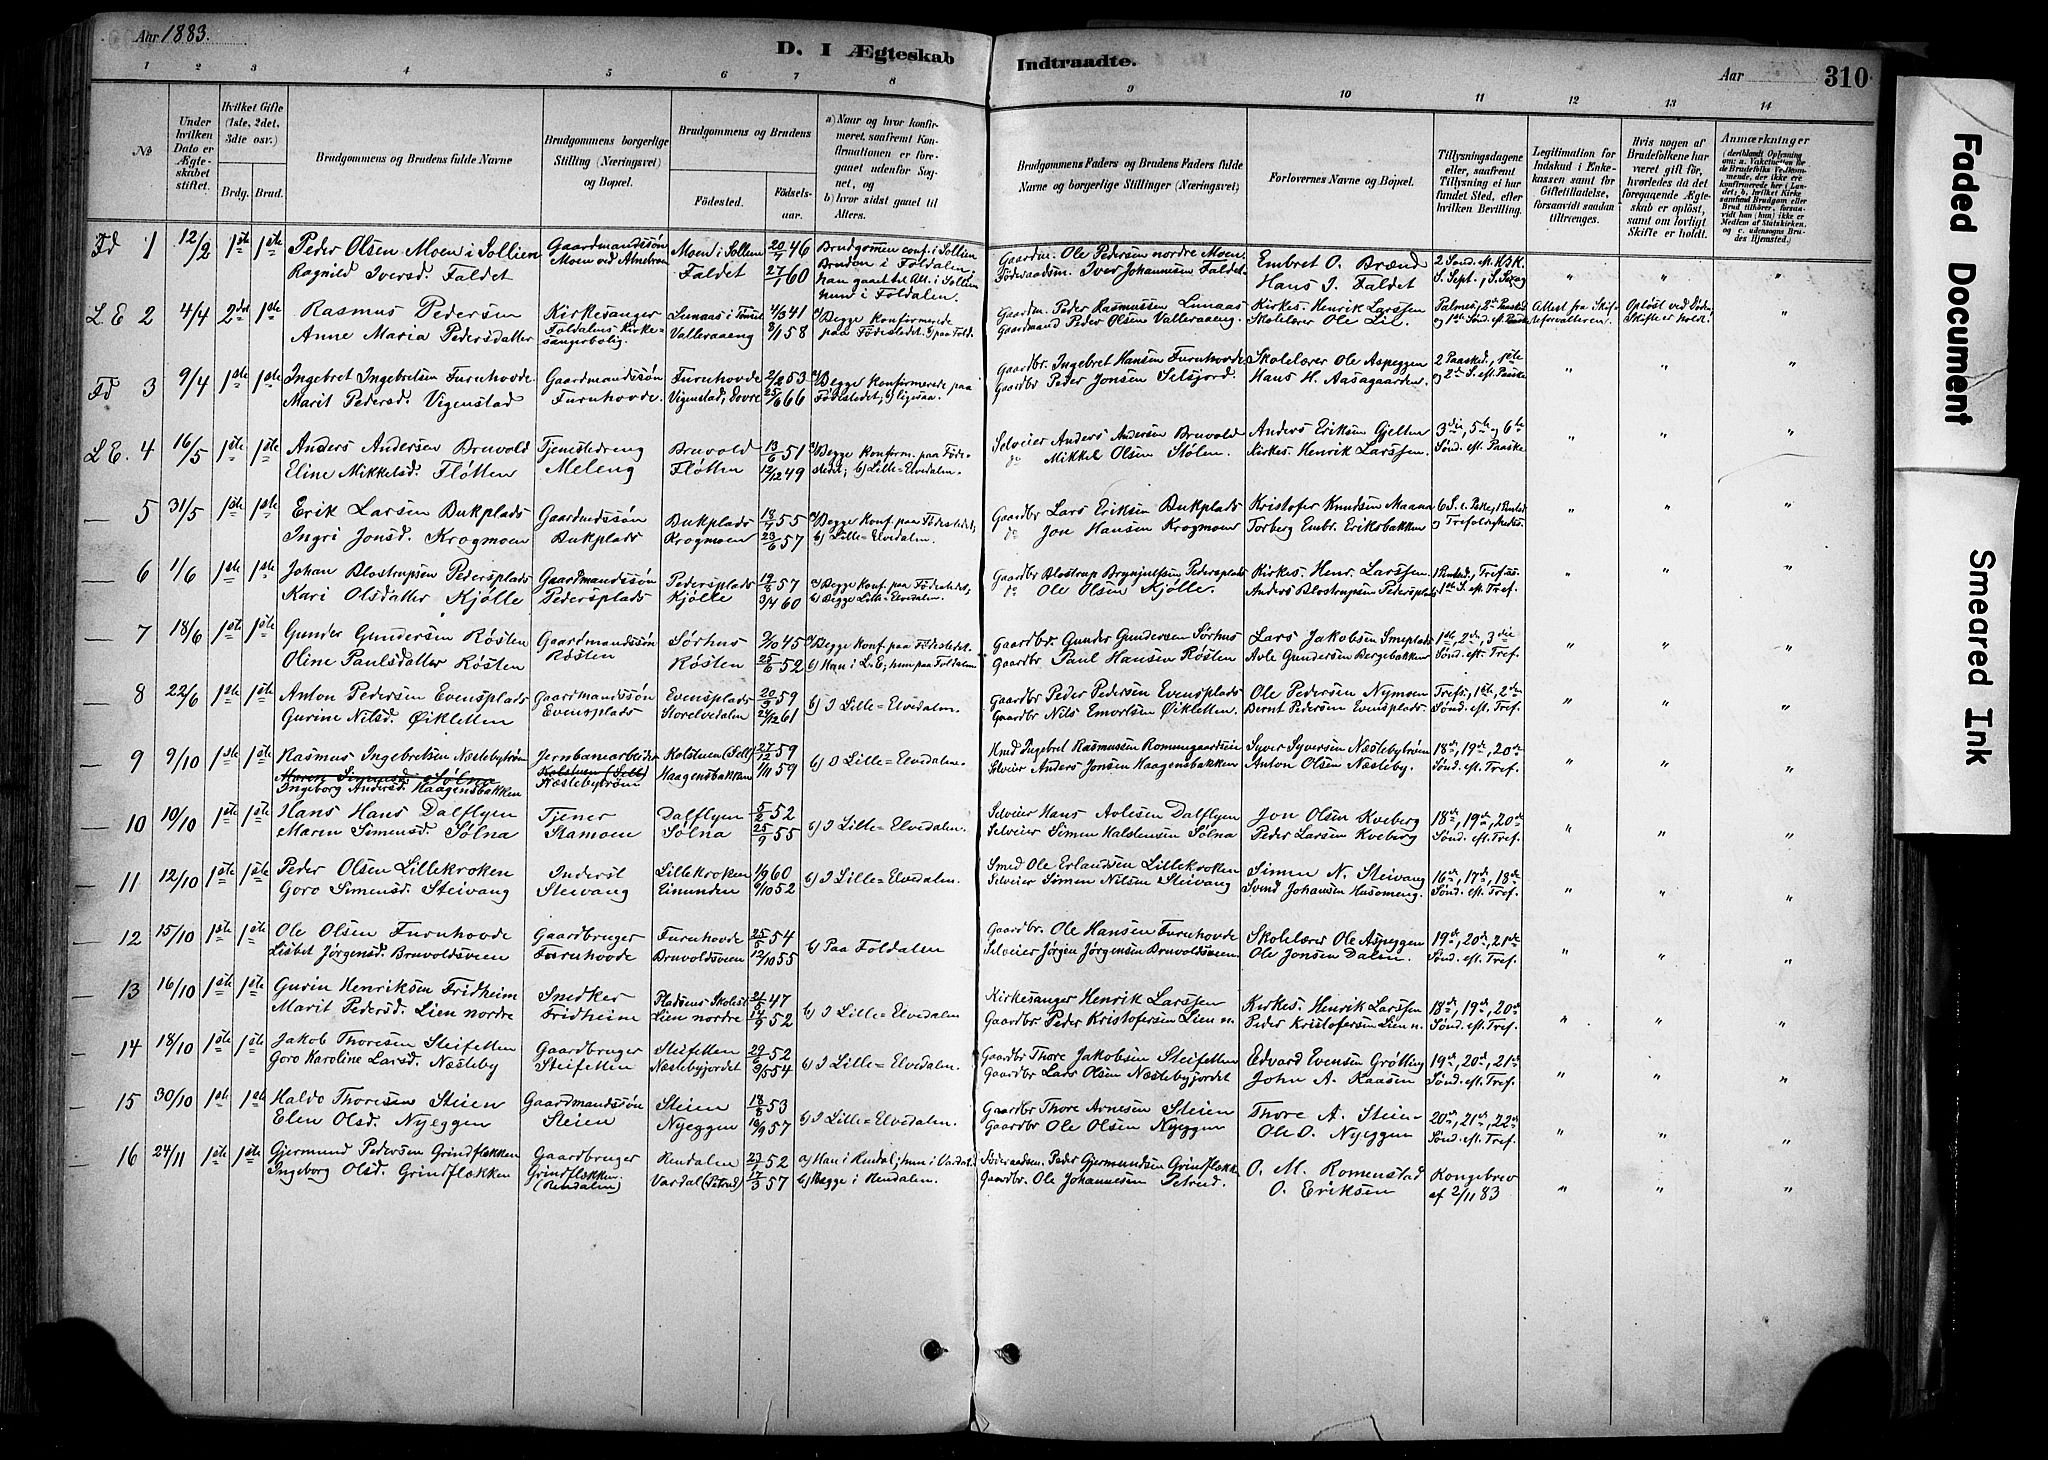 Aar 1883.
D. I Ægteskab Indtraadte.
Aar
310
1 2 3 4 5 6 7 8 9 10 11 12 13 14
No
Under hvilken Dato er Ægteskabet stiftet.
Hvilket Gifte (1ste, 2det, 3die osv.)
Brdg. Brud.
Brudgommens og Brudens fulde Navne
Brudgommens borgerlige Stilling (Næringsvei) og Bopæl.
Brudgommens og Brudens
Födested. Födselsaar.
a) Naar og hvor konfirmeret, saafremt Konfirmationen er foregaaet udenfor Sognet, og b) hvor sidst gaaet til Alters.
Brudgommens Faders og Brudens Faders fulde Navne og borgerlige Stillinger (Næringsvei)
Forlovernes Navne og Bopæl.
Tillysningsdagene eller, saafremt Tillysning ei har fundet Sted, efter hvilken Bevilling.
Legitimation for Indskud i Enkekassen samt for Giftetilladelse, forsaavidt saadan tiltrænges.
Hvis nogen af Brudefolkene har været gift för, hvorledes da det foregaaende Ægteskab er oplöst, samt om lovligt Skifte er holdt.
Anmærkninger
Fd 1 12/2 1ste 1ste Peder Olsen Moen i Sollien Gaardmandssøn Moen i Sollien 20/7 46 Brudgomen conf. i Sollien Gaardm. Ole Pedersen nordre Moen Embret O. Brænd
Ragnild Iversd. Faldet Faldet 27/1 60 Bruden i Foldalen Føderaadsm. Iver Johannesen Faldet. Hans I. Faldet
Han gaaet til Alt. i Sollien
hun i Foldalen.
L.E 2 4/4 2det 1ste Rasmus Pedersen Kirkesanger Lunaas 41 Begge konfirmerede Gaardm. Peder Rasmussen Lunaas Kirkes. Henrik Larssen Attest fra Skifteforvalteren. Opløst ved Døden. Skifte er holdt.
Anne Maria Pedersdatter Foldalens Kirkesangerbolig. Valleraaeng 9/1 58 paa Fødestedet. Gaardmand Peder Olsen Valleraaeng. Skolelærer Ole Lil.
Fd 3 9/4 1ste 1ste Ingebret Ingebretsen Furuhovde Gaardmandssøn Furuhovde 2/2 53 Begge konfirmerede paa Gaardbr. Ingebret Hansen Furuhovde Skolelærer Ole Aspeggen 2 Paasked., 1ste
Marit Pedersd. Vigenstad Furuhovde. Vigenstad, Dovre 66 Fødestedet; b) ligesaa. Gaardbr Peder Jonsen Selsjord. Hans H. Aasagaarden. og 2den S. eft. Paaske
L.E. 4 16/5 1ste 1ste Anders Andersen Bruvold Tjenestedreng Bruvold 13/6 51 Begge Konfirm. paa Føde- Selveier Anders Andersen Bruvold Anders Eriksen Gjelten 3die, 5te og 6te
Eline Mikkelsd. Fløtten Meleng Fløtten 12/12 49 stedet; b) Lille-Elvedalen. do Mikkel Olsen Stølen. Kirkes. Henrik Larssen. Sønd. eft. Paaske
5 31/5 1ste 1ste Erik Larsen Bukplads Bukplads 18/9 55 Begge Konf. paa Fødestedet; Gaardbr Lars Eriksen Bukplads Kristofer Knudsen Maana
Ingri Jonsd. Krogmoen Bukplads Krogmoen 23/6 57 b) Lille-Elvedalen. do Jon Hansen Krogmoen Torberg Embr. Eriksbakken og Trefoldighedss.
6 1/6 1ste 1ste Johan Blostrupsen Pedersplads Gaardmandssøn Pedersplads 57 Begge Konf. paa Fødestedet; Gaardbr Blostrup Brynjulfsen Pedersplads Kirkes. Henr. Larssen
Kari Olsdatter Kjølle Pedersplads Kjølle 3/4 60 b) Begge Lille-Elvedalen. do Ole Olsen Kjølle. Anders Blostrupsen Pedersplads 1ste S. eft. Tref.
7 18/6 1ste 1ste Gunder Gundersen Røsten Gaardmandssøn Sørhus 9/10 45 Begge Konf. paa Fødestedet. Gaardbr. Gunder Gundersen Sørhus Lars Jakobsen Smeplads 1ste, 2den, 3die
Oline Paulsdatter Røsten Røsten Røsten 25/6 52 b) Han i L.E; hun paa Foldalen Gaardbr Paul Hansen Røsten Avle Gundersen Bergebakken Sønd. eft. Tref.
8 22/6 1ste 1ste Anton Pedersen Evensplads Gaardmandssøn Evensplads 20/9 59 b) I Lille-Elvedalen. Gaardbr Peder Pedersen Evensplads Ole Pedersen Nymoen Trefs., 1ste, 2den
Gurine Nilsd. Øikletten Evensplads Storelvedalen 24/12 61 Gaardbr Nils Øikletten. Bernt Pedersen Evensplads. Sønd. eft. Tref.
9 9/10 1ste 1ste Rasmus Ingebretsen Næstebystrøm Jernbanearbeider Kolstuen (Sell) 27/12 59 b) I Lille-Elvedalen. Ingebret Rasmussen Syver Syversen Næstebystrøm 18de, 19de, 20de
Maren Simensd. Sølna Kolstuen (Sell) Haagensbakken 1/11 59 Selveier Anders Jonsen Haagensbakken Anton Olsen Næsteby. Sønd. eft. Tref.
Ingeborg Andersd. Haagensbakken Næstebystrøm
10 10/10 1ste 1ste Hans Hans Dalflyen Tjener Dalflyen 5/2 52 b) I Lille-Elvedalen. Selveier Hans Avlesen Dalflyen Jon Olsen Kveberg 18de, 19de, 20de
Maren Simensd. Sølna Stamoen Sølna 25/9 55 Selveier Simen Halstensen Sølna Peder Larsen Kveberg Sønd. eft. Tref.
11 12/10 1ste 1ste Peder Olsen Lillekroken Inderst Lillekroken 1/9 60 b) I Lille-Elvedalen. Smed Ole Erlandsen Lillekroken Simen N. Steivang 16de, 17de, 18de
Goro Simensd. Steivang Steivang Eimunden 9/10 52 Selveier Simen Nilsen Steivang Svend Johansen Husomeng. Sønd. eft. Tref.
12 15/10 1ste 1ste Ole Olsen Furuhovde Gaardbruger Furuhovde 25/5 54 b) Paa Foldalen Gaardbr. Ole Hansen Furuhovde Skolelærer Ole Aspeggen 19de, 20de, 21de
Lisbet Jørgensd. Bruvoldsveen Furuhovde Bruvoldsveen 12/10 55 Selveier Jørgen Jørgensen Bruvoldsveen Ole Jonsen Dalen. Sønd. eft. Tref.
13 16/10 1ste 1ste Gurin Henriksen Fridheim Snedker 21/5 47 b) I Lille-Elvedalen Kirkesanger Henrik Larssen Kirkes. Henrik Larssen 18de, 19de, 20de
Marit Pedersd. Lien nordre Fridheim Lien nordre 14/9 52 Gaardbr Peder Kristofersen Lien n. Peder Kristofersen Lien n. Sønd. eft. Tref.
14 18/10 1ste 1ste Jakob Thoresen Steifetten Gaardbruger Steifetten 29/6 52 b) I Lille-Elvedalen. Gaardbr Thore Jakobsen Steifetten Edvard Evensen Grøtting 19de, 20de, 21de
Goro Karoline Larsd. Næsteby Steifetten Næstebyjordet 9/5 54 Gaardbr Lars Olsen Næstebyjordet John A. Kaasen Sønd. eft. Tref.
15 30/10 1ste 1ste Haldo Thoresen Steien Gaardmandssøn Steien 18/8 53 b) I Lille-Elvedalen. Gaardbr Thore Avnesen Steien Thore A. Steien 20de, 21de, 22de
Elen Olsd. Nyeggen Steien Nyeggen 16/9 57 Gaardbr Ole Olsen Nyeggen Ole O. Nyeggen Sønd. eft. Tref.
16 24/11 1ste 1ste Gjermund Pedersen Grindflækken Gaardbruger Rendalen 52 a) Han i Rendal; hun i Vardal Føderaadsm. Peder Gjermundsen Grindflækk. O. M. Romenstad Kongebrev
Ingeborg Olsd. Grindflækken Grindflækken (Rendalen) Vardal 17/3 57 b) Begge i Rendalen. Gaardbr. Ole Johannesen O. Eriksen af 2/11 83
Faded Document
Smeared Ink